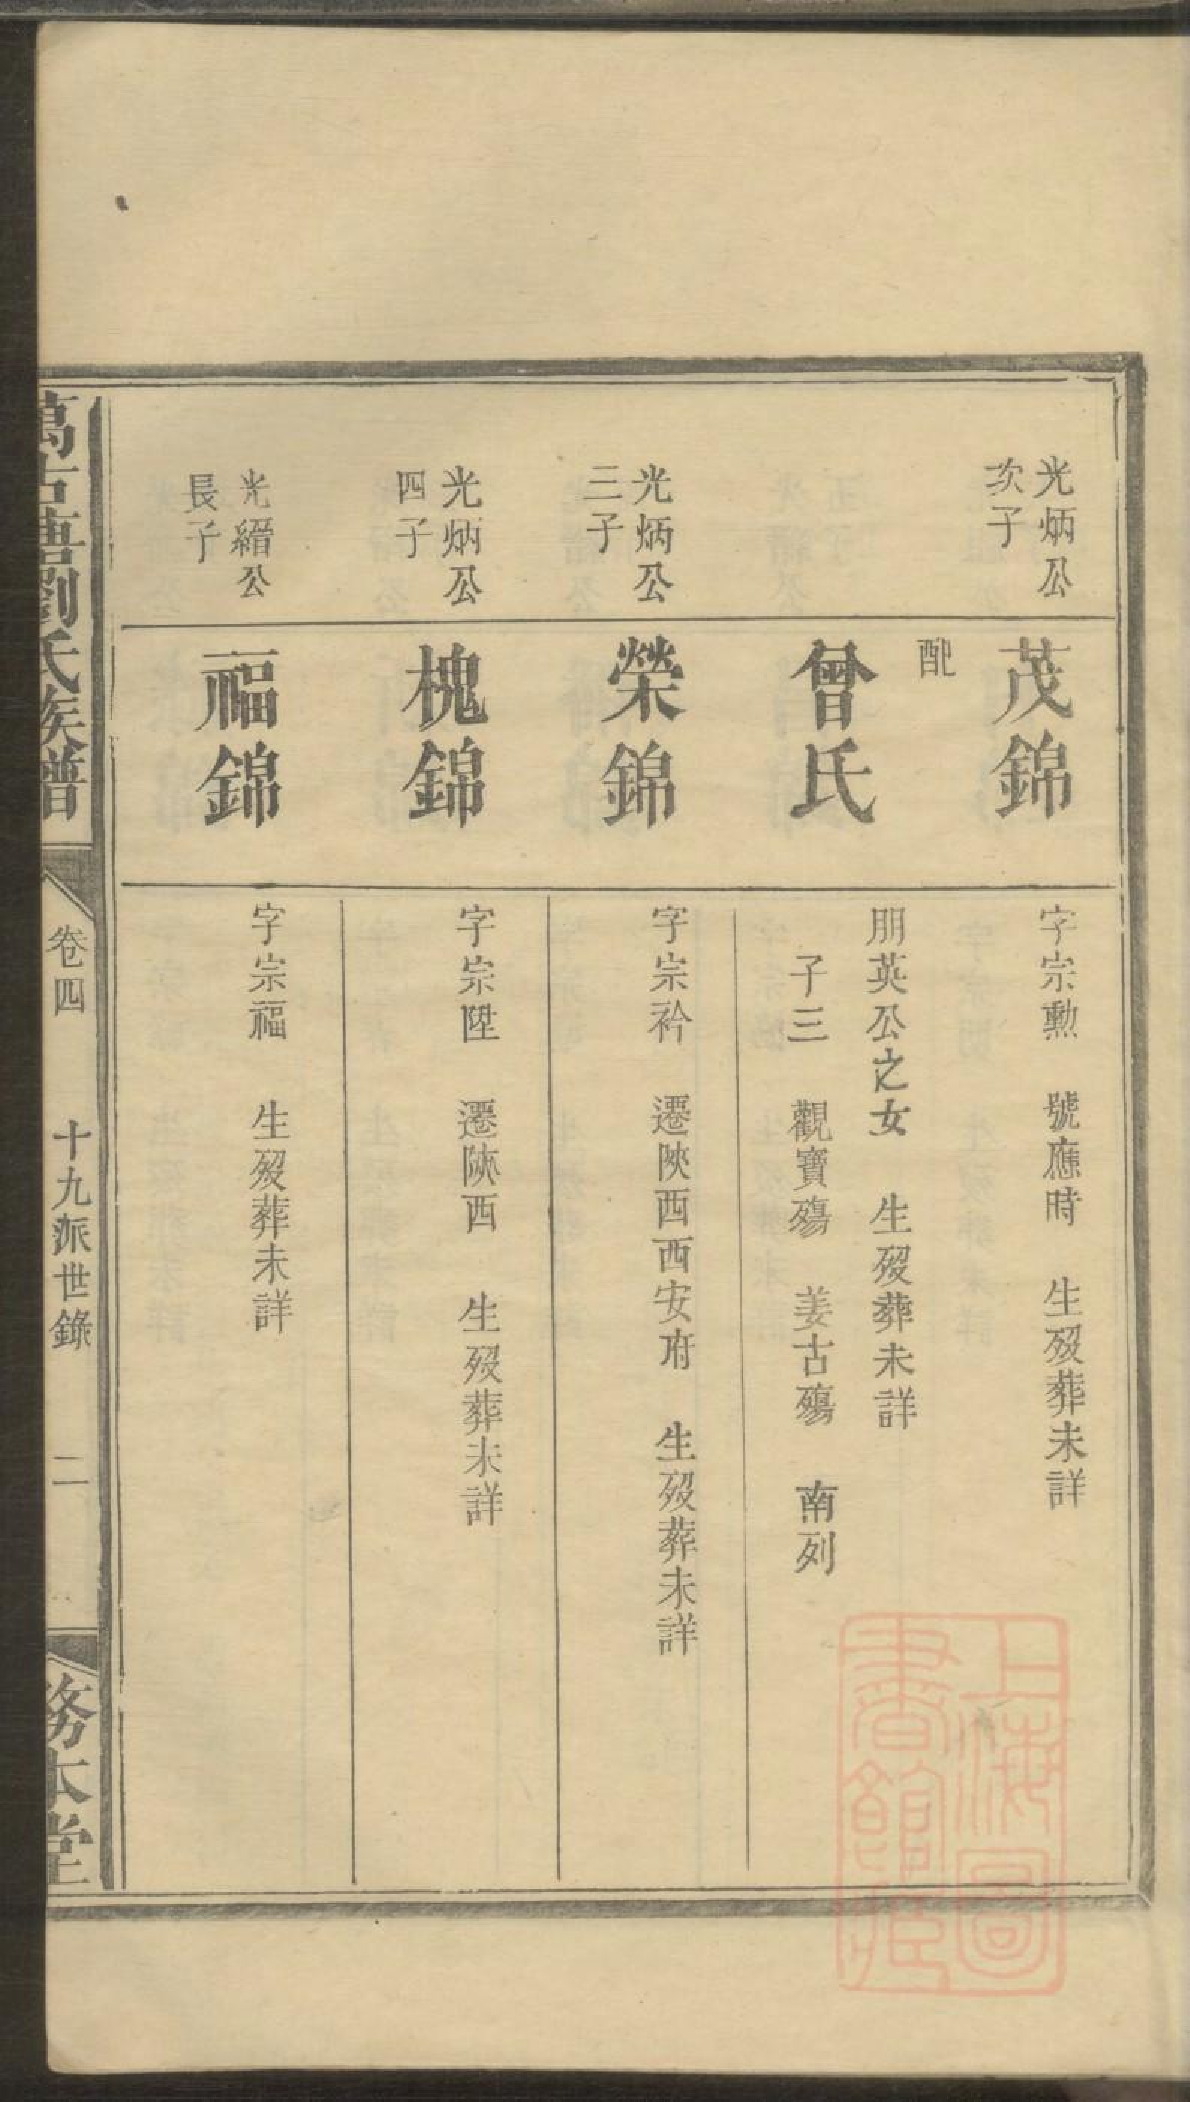 光炳公
次子
茂錦
字宗勲　號應時　生歿葬未詳
配
曾氏
朋英公之女　生歿葬未詳
子三　觀寶殤　姜古殤　南列
光炳公
三子
榮錦
字宗衿　遷陜西西安府　生歿葬未詳
光炳公
四子
槐錦
字宗陞　遷陜西　生歿葬未詳
光縉公
長子
福錦
字宗福　生歿葬未詳
萬古塘劉氏族譜
卷四　十九派世錄　二
務本堂
上海圖
書館藏